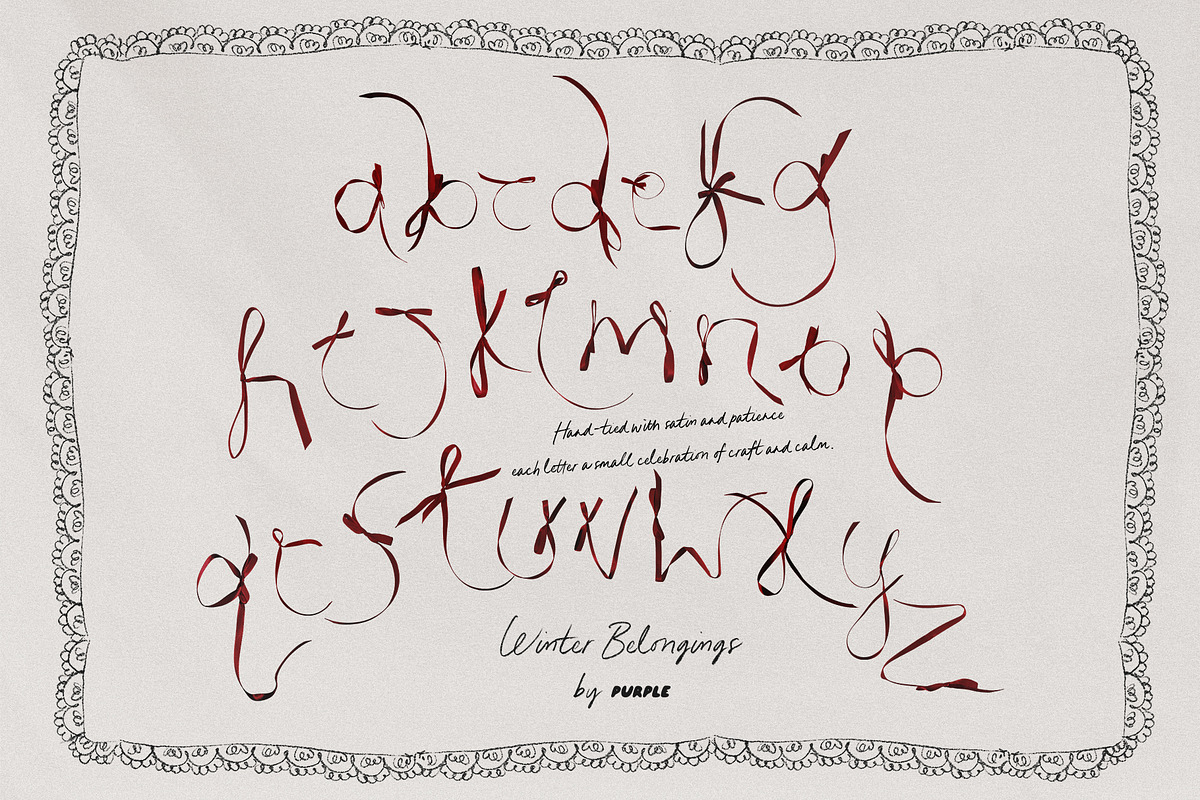 abcdefg
hijklmnop
Hand-tied with satin and patience
each letter a small celebration of craft and calm.
qrstuvwxyz
Winter Belongings
by PURPLE